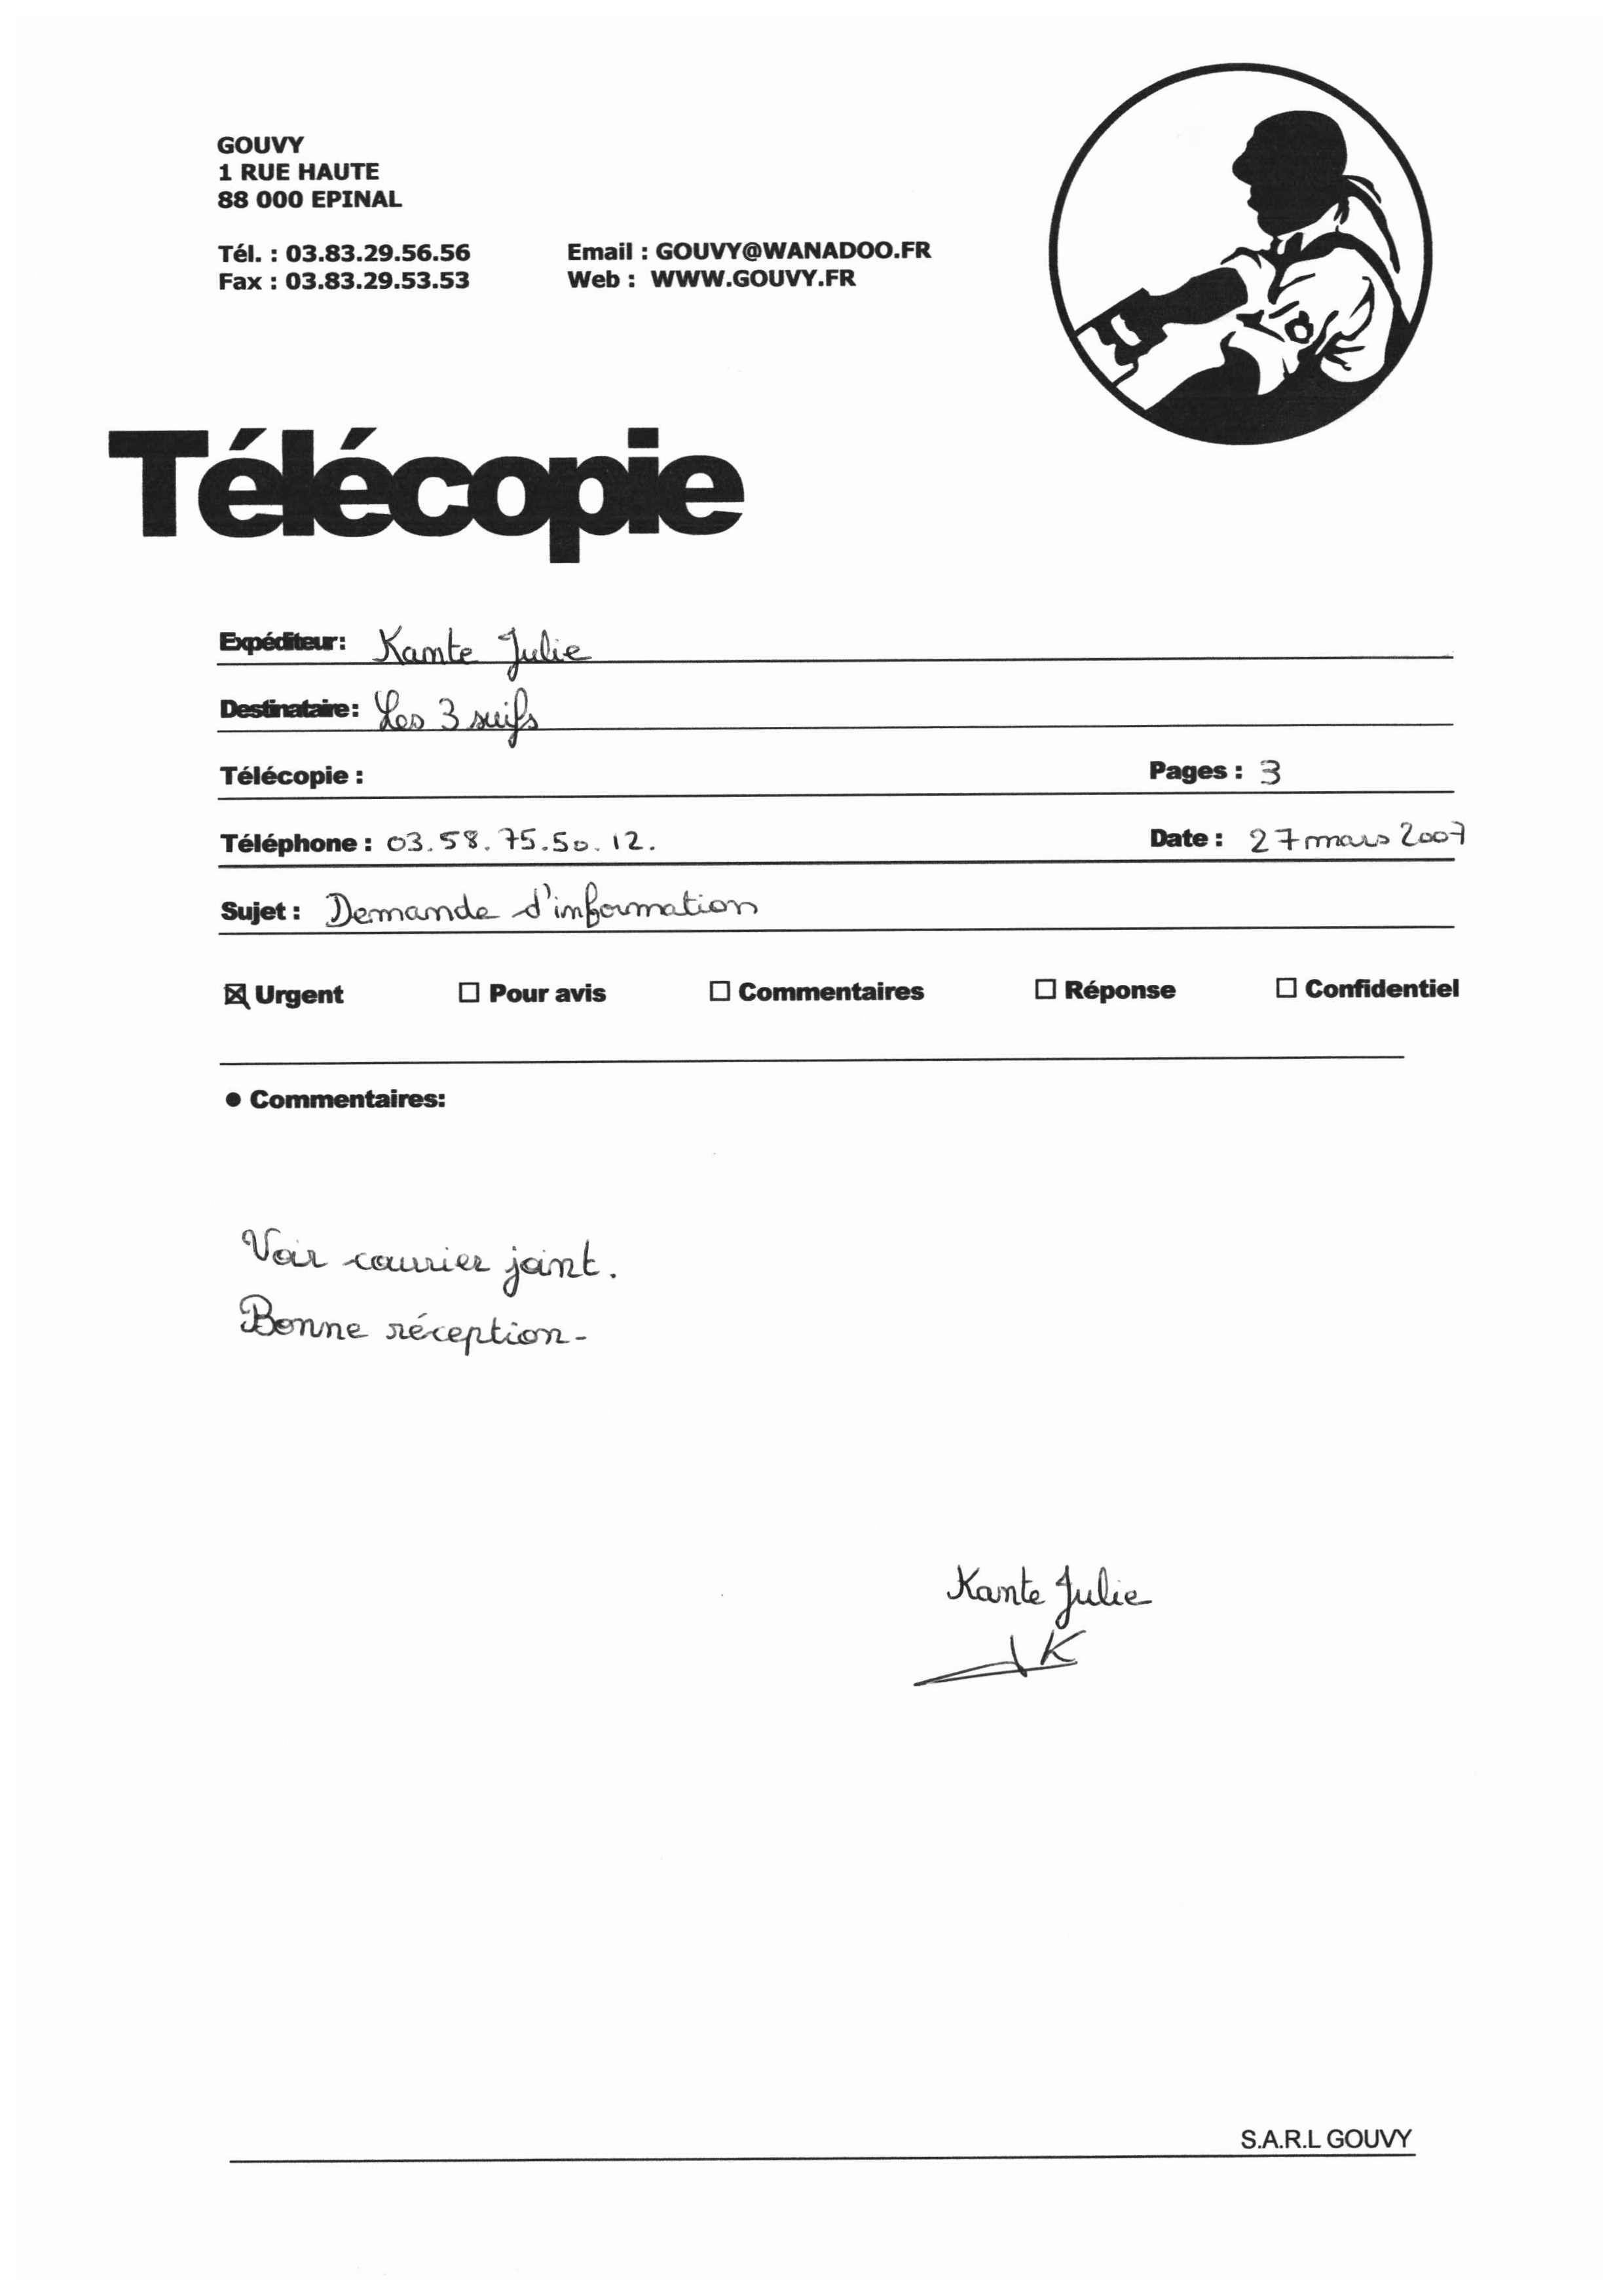 GOUVY
1 RUE HAUTE
88 000 EPINAL
Tél. : 03.83.29.56.56
Fax : 03.83.29.53.53
Email : GOUVY@WANADOO.FR
Web : WWW.GOUVY.FR
Télécopie
Expéditeur: Kante Julie
Destinataire: Les 3 suifs
Télécopie : Pages : 3
Téléphone : 03.58.75.50.12. Date : 27 mars 2007
Sujet : Demande d'information
☒ Urgent ☐ Pour avis ☐ Commentaires ☐ Réponse ☐ Confidentiel
● Commentaires:
Voir courrier joint.
Bonne réception-
Kante Julie
JK
S.A.R.L GOUVY